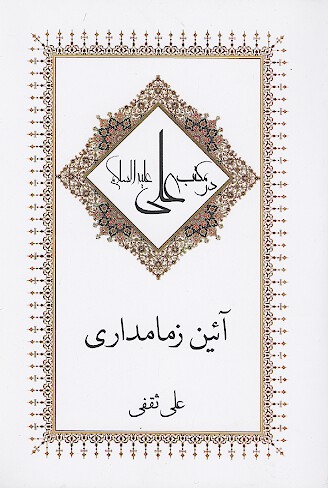 در مکتب علی علیه السلام
آئین زمامداری
علی ثقفی